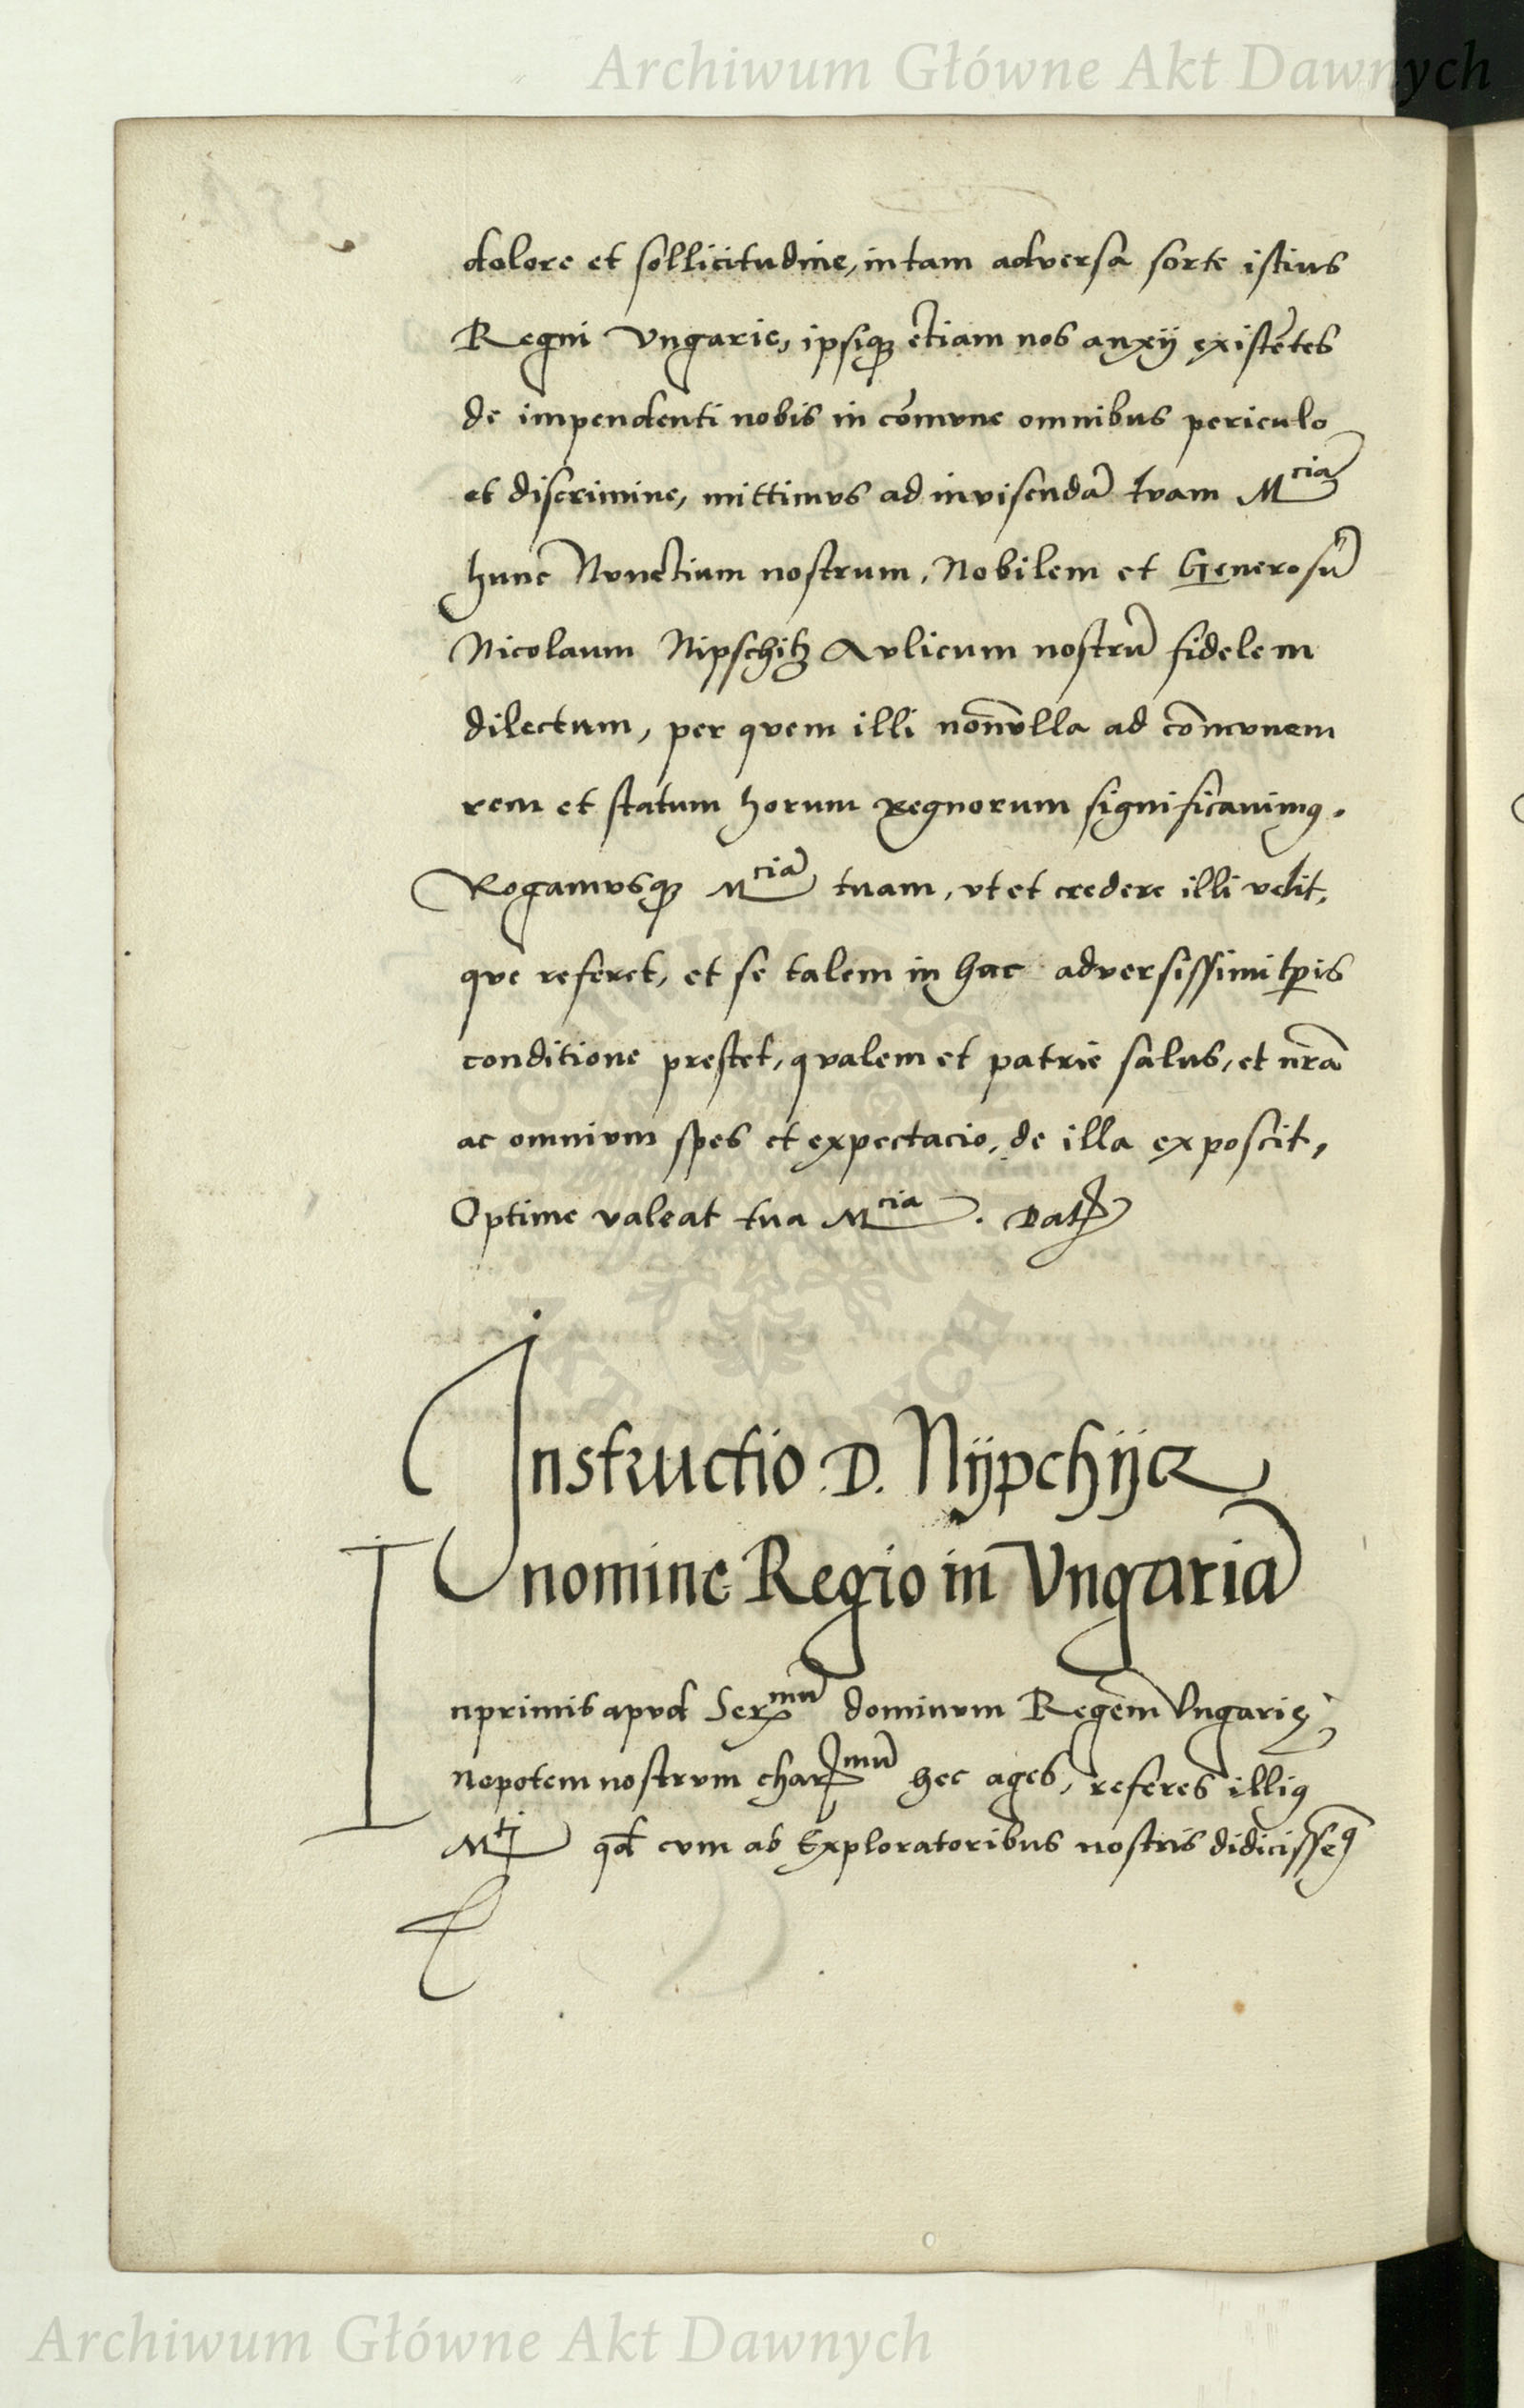 Archiwum Główne Akt Dawnych
dolore et sollicitudine, in tam adversa sorte istius
Regni Vngarie, ipsiqꝫ etiam nos anxij existẽtes
de impendenti nobis in cõmvne omnibus periculo
et discrimine, mittimvs ad invisendã tvam Mciã
hunc Nvnctium nostrum, Nobilem et Generosũ
Nicolaum Nipschitz Avlicum nostrũ fidelem
dilectum, per qvem illi nonvlla ad cõmvnem
rem et statum horum regnorum significavimꝯ.
Rogamvsqꝫ Mciã tuam, vt et credere illi velit,
qve referet, et se talem in hac adversissimi tꝑis
conditione prestet, qvalem et patrie salus, et nrã
ac omnivm spes et expectacio, de illa exposcit,
Optime valeat tua Mcia. Datꝭ
Instructio D. Nijpchijcz
nomine Regio in Vngariã
Inprimis apvd Sermũ dominvm Regem Vngarię
Nepotem nostrvm charmũ hec ages, referes illiꝯ
Mti qd cvm ab Exploratoribus nostris didicissemꝯ
AKT DAWNYCH
Archiwum Główne Akt Dawnych